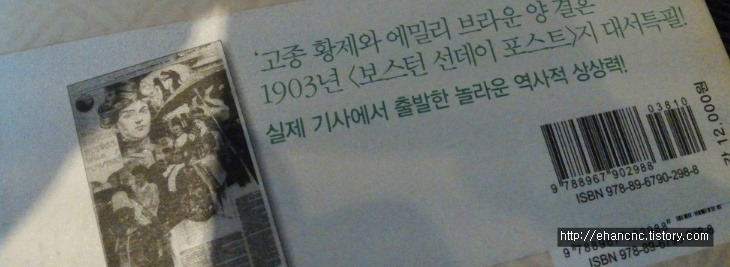 '고종 황제와 에밀리 브라운 양 결혼
1903년 〈보스턴 선데이 포스트〉지 대서특필!
실제 기사에서 출발한 놀라운 역사적 상상력!
03810
9 788967 902988
ISBN 978-89-6790-298-8
값 12,000원
http://ehancnc.tistory.com